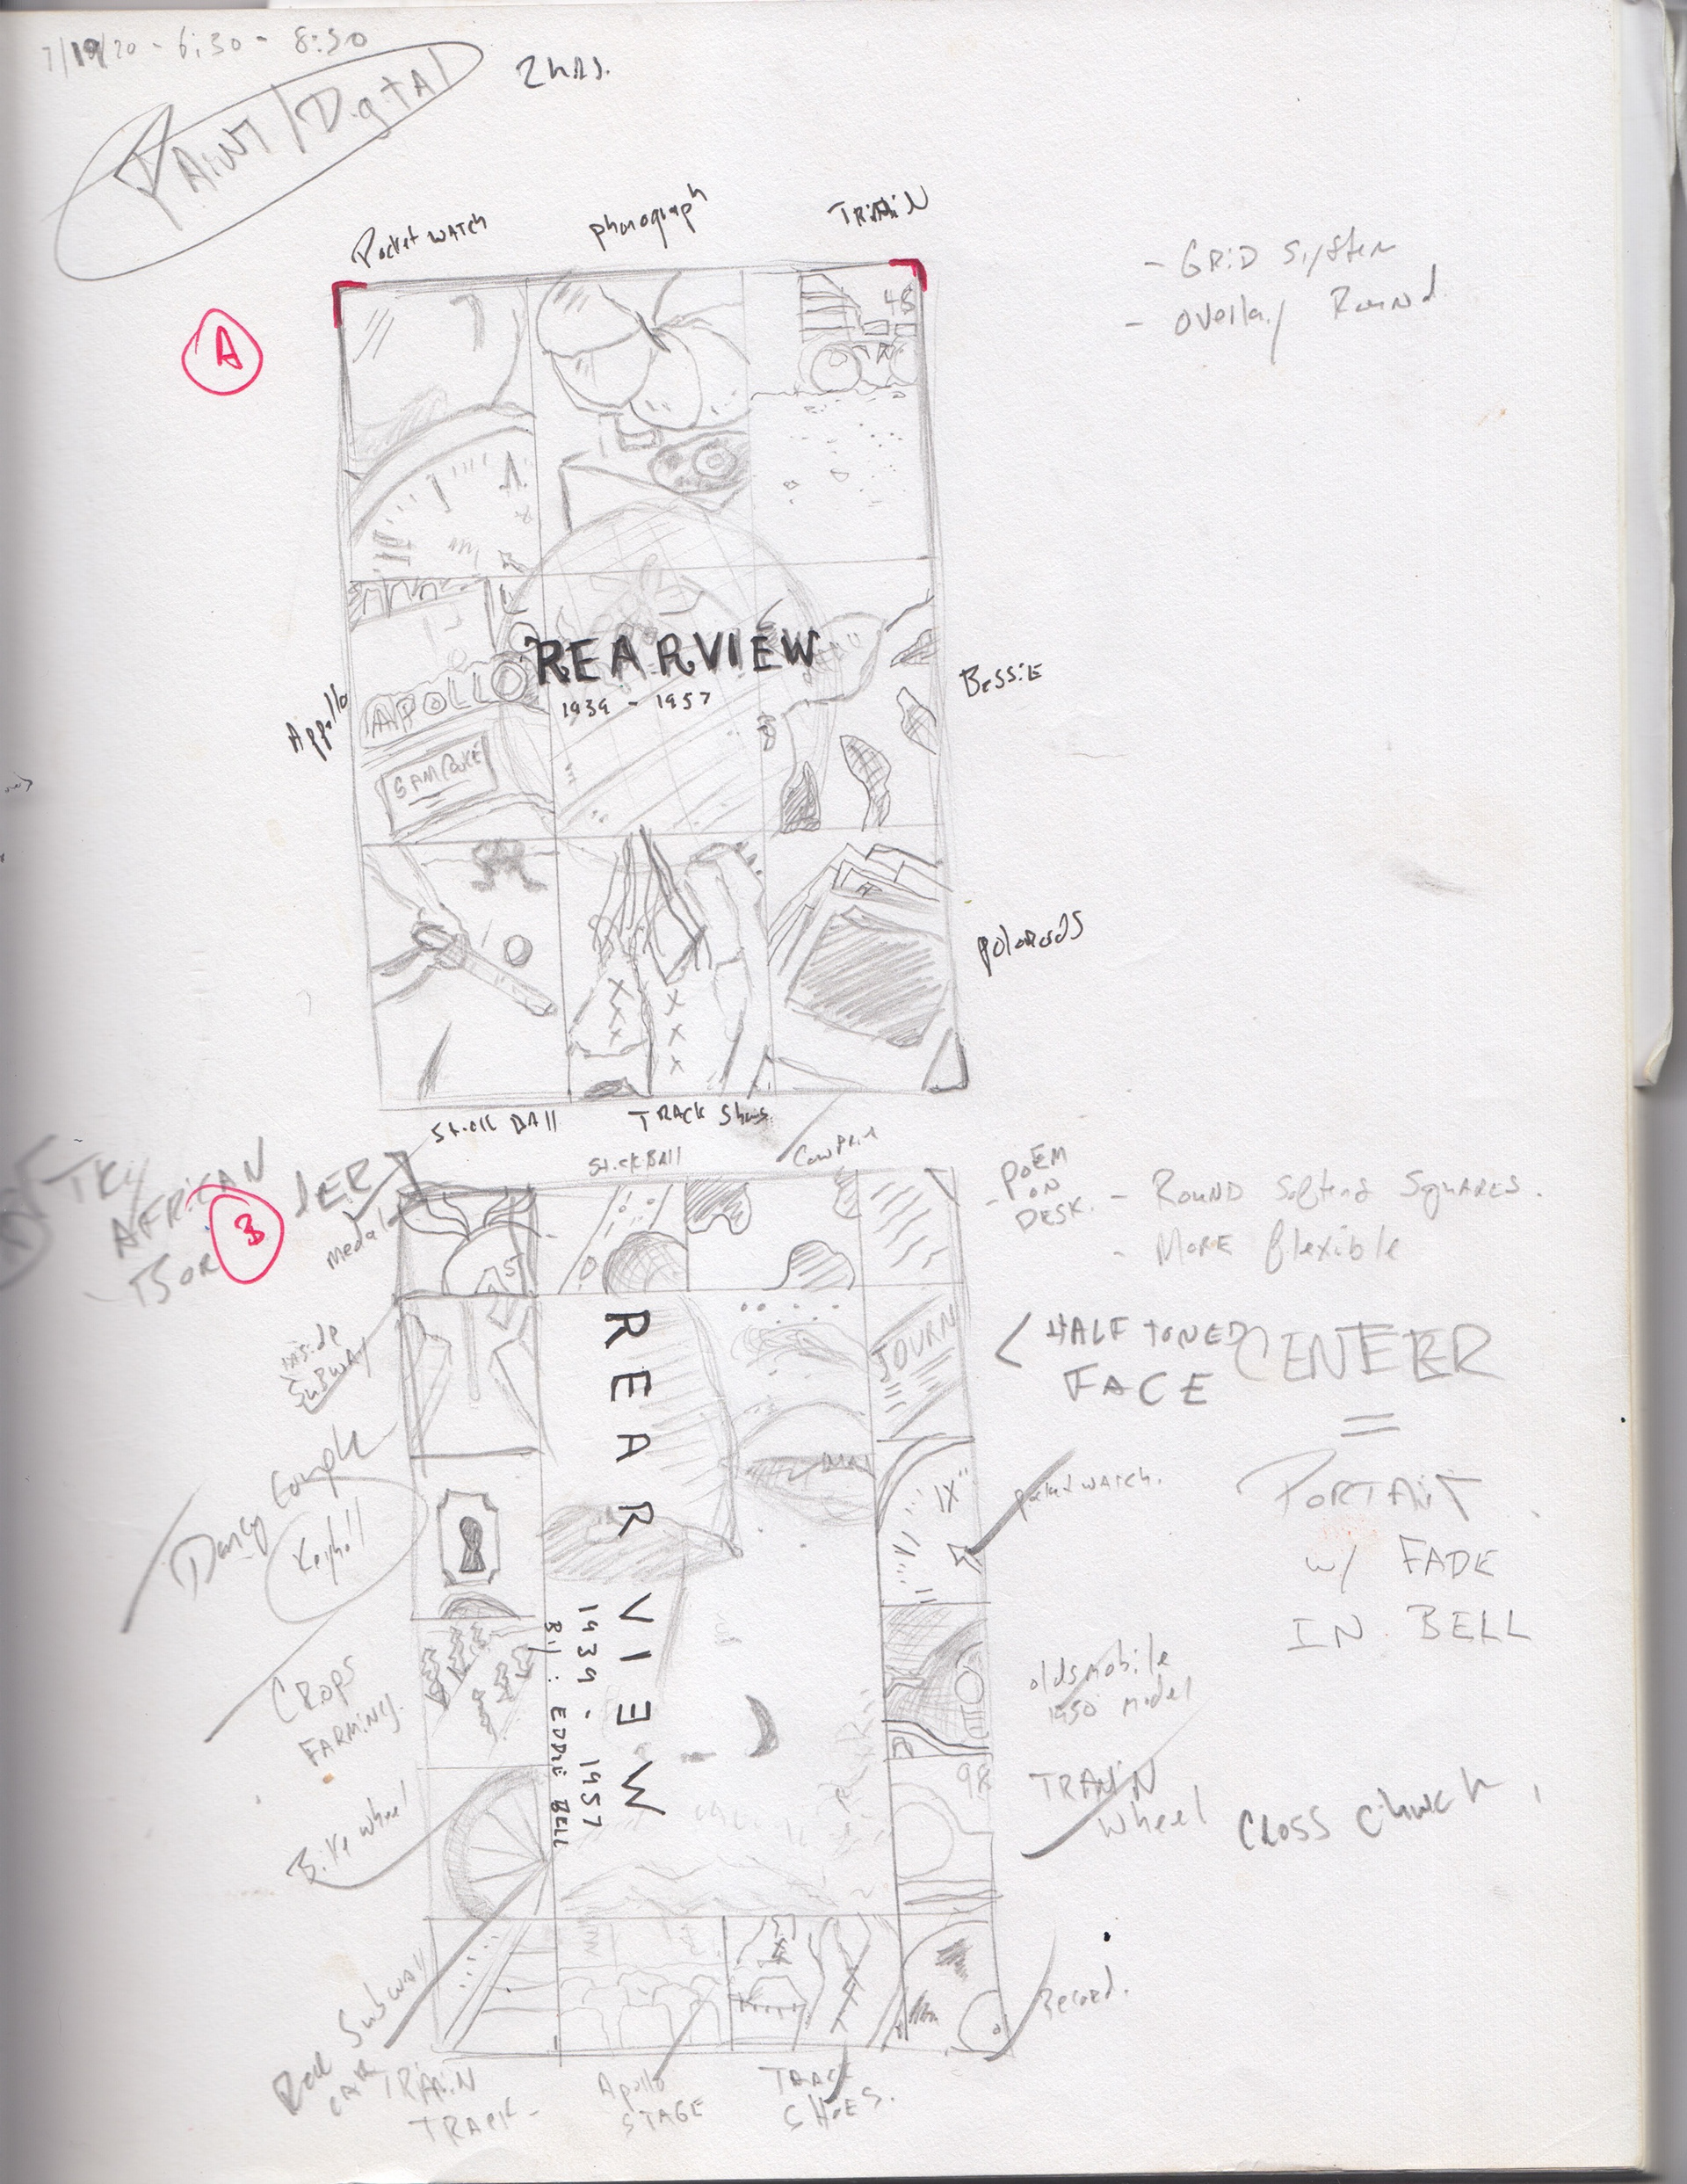 7/19/20 - 6:30 - 8:30
2 hrs.
PAINT/Digital
Pocket WATCH
phonograph
TRAIN
- GRID System
- overlay Round
A
48
REARVIEW
1939 - 1957
APOLLO
SAM COOKE
Appollo
Bessie
polaroids
Stick BALL
TRACK Shoes
TRY
AFRICAN
B
medal
StickBALL
CowPrint
- POEM
ON
DESK.
- ROUND Softens SQUARES.
- MORE flexible
inside
SUBWAY
JOURN
< HALF TONED
FACE
CENTER
=
PORTAIT
w/ FADE
IN BELL
REAR VIEW
1939 - 1957
BY: EDDIE BELL
Dancing Couple
Keyholl
IX
pocket watch.
CROPS
FARMING.
oldsmobile
1950 model
Bike wheel
98
TRAIN
wheel
CROSS church
Subway
TRAIN
TRACK -
Apollo
STAGE
TRACK
SHOES.
Record.